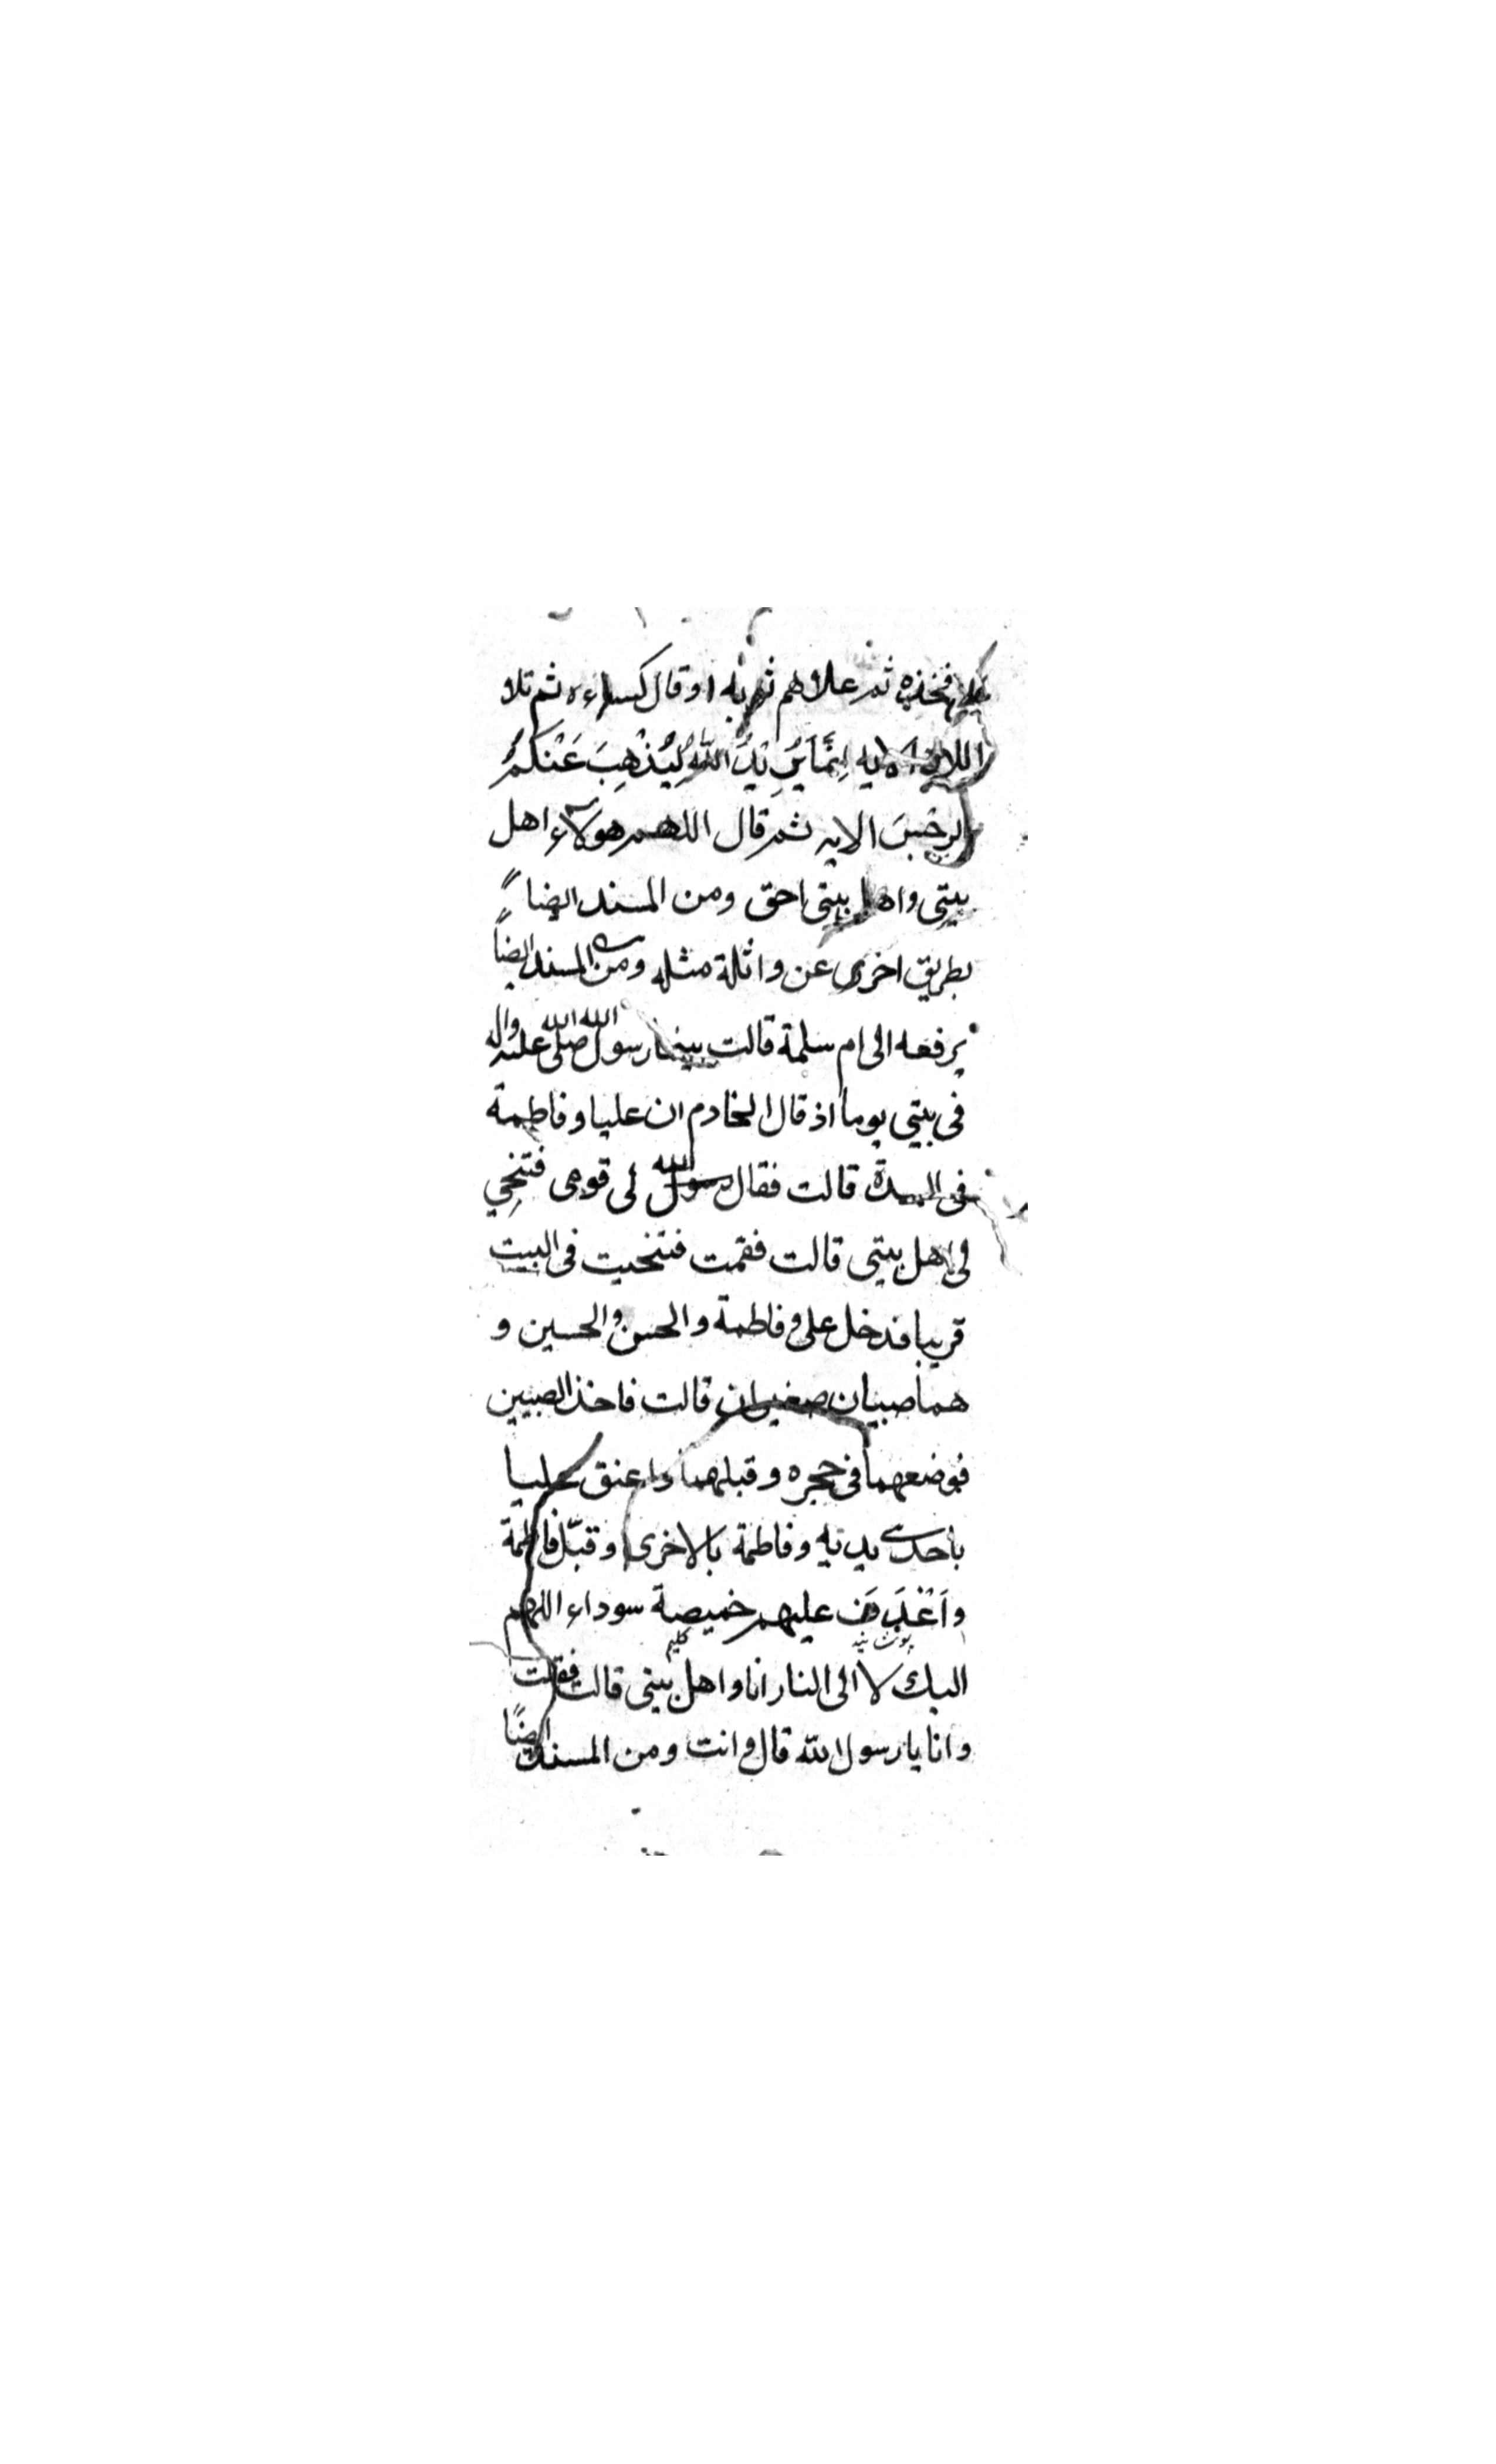 فخذيه ثم علاهم ثوبه او قال كساءه ثم تلا
الاية اِنَّمَا يُرِيدُ اللّٰهُ لِيُذْهِبَ عَنْكُمُ
الرجْسَ الايه ثم قال اللهم هولاء اهل
بيتى واهل بيتى احق ومن المسند ايضاً
بطريق اخرى عن واثلة مثله ومن المسند ايضاً
يرفعه الى ام سلمة قالت بينما رسول الله صلى الله عليه واله
فى بيتى يوما اذ قال الخادم ان عليا وفاطمة
فى السدة قالت فقال رسول الله لى قومى فتنحي
لى اهل بيتى قالت فقمت فتنحيت فى البيت
قريبا فدخل على وفاطمة والحسن والحسين و
هما صبيان صغيران قالت فاخذ الصبيين
فوضعهما فى حجره وقبلهما واعنق عليا
باحدى يديه وفاطمة بالاخرى وقبّل فاطمة
واَغْدَفَ عليهم خميصة سوداء اللهم
كليم
اليك لا الى النار انا واهل بيتى قالت فقلت
وانا يا رسول الله قال وانت ومن المسند ايضًا